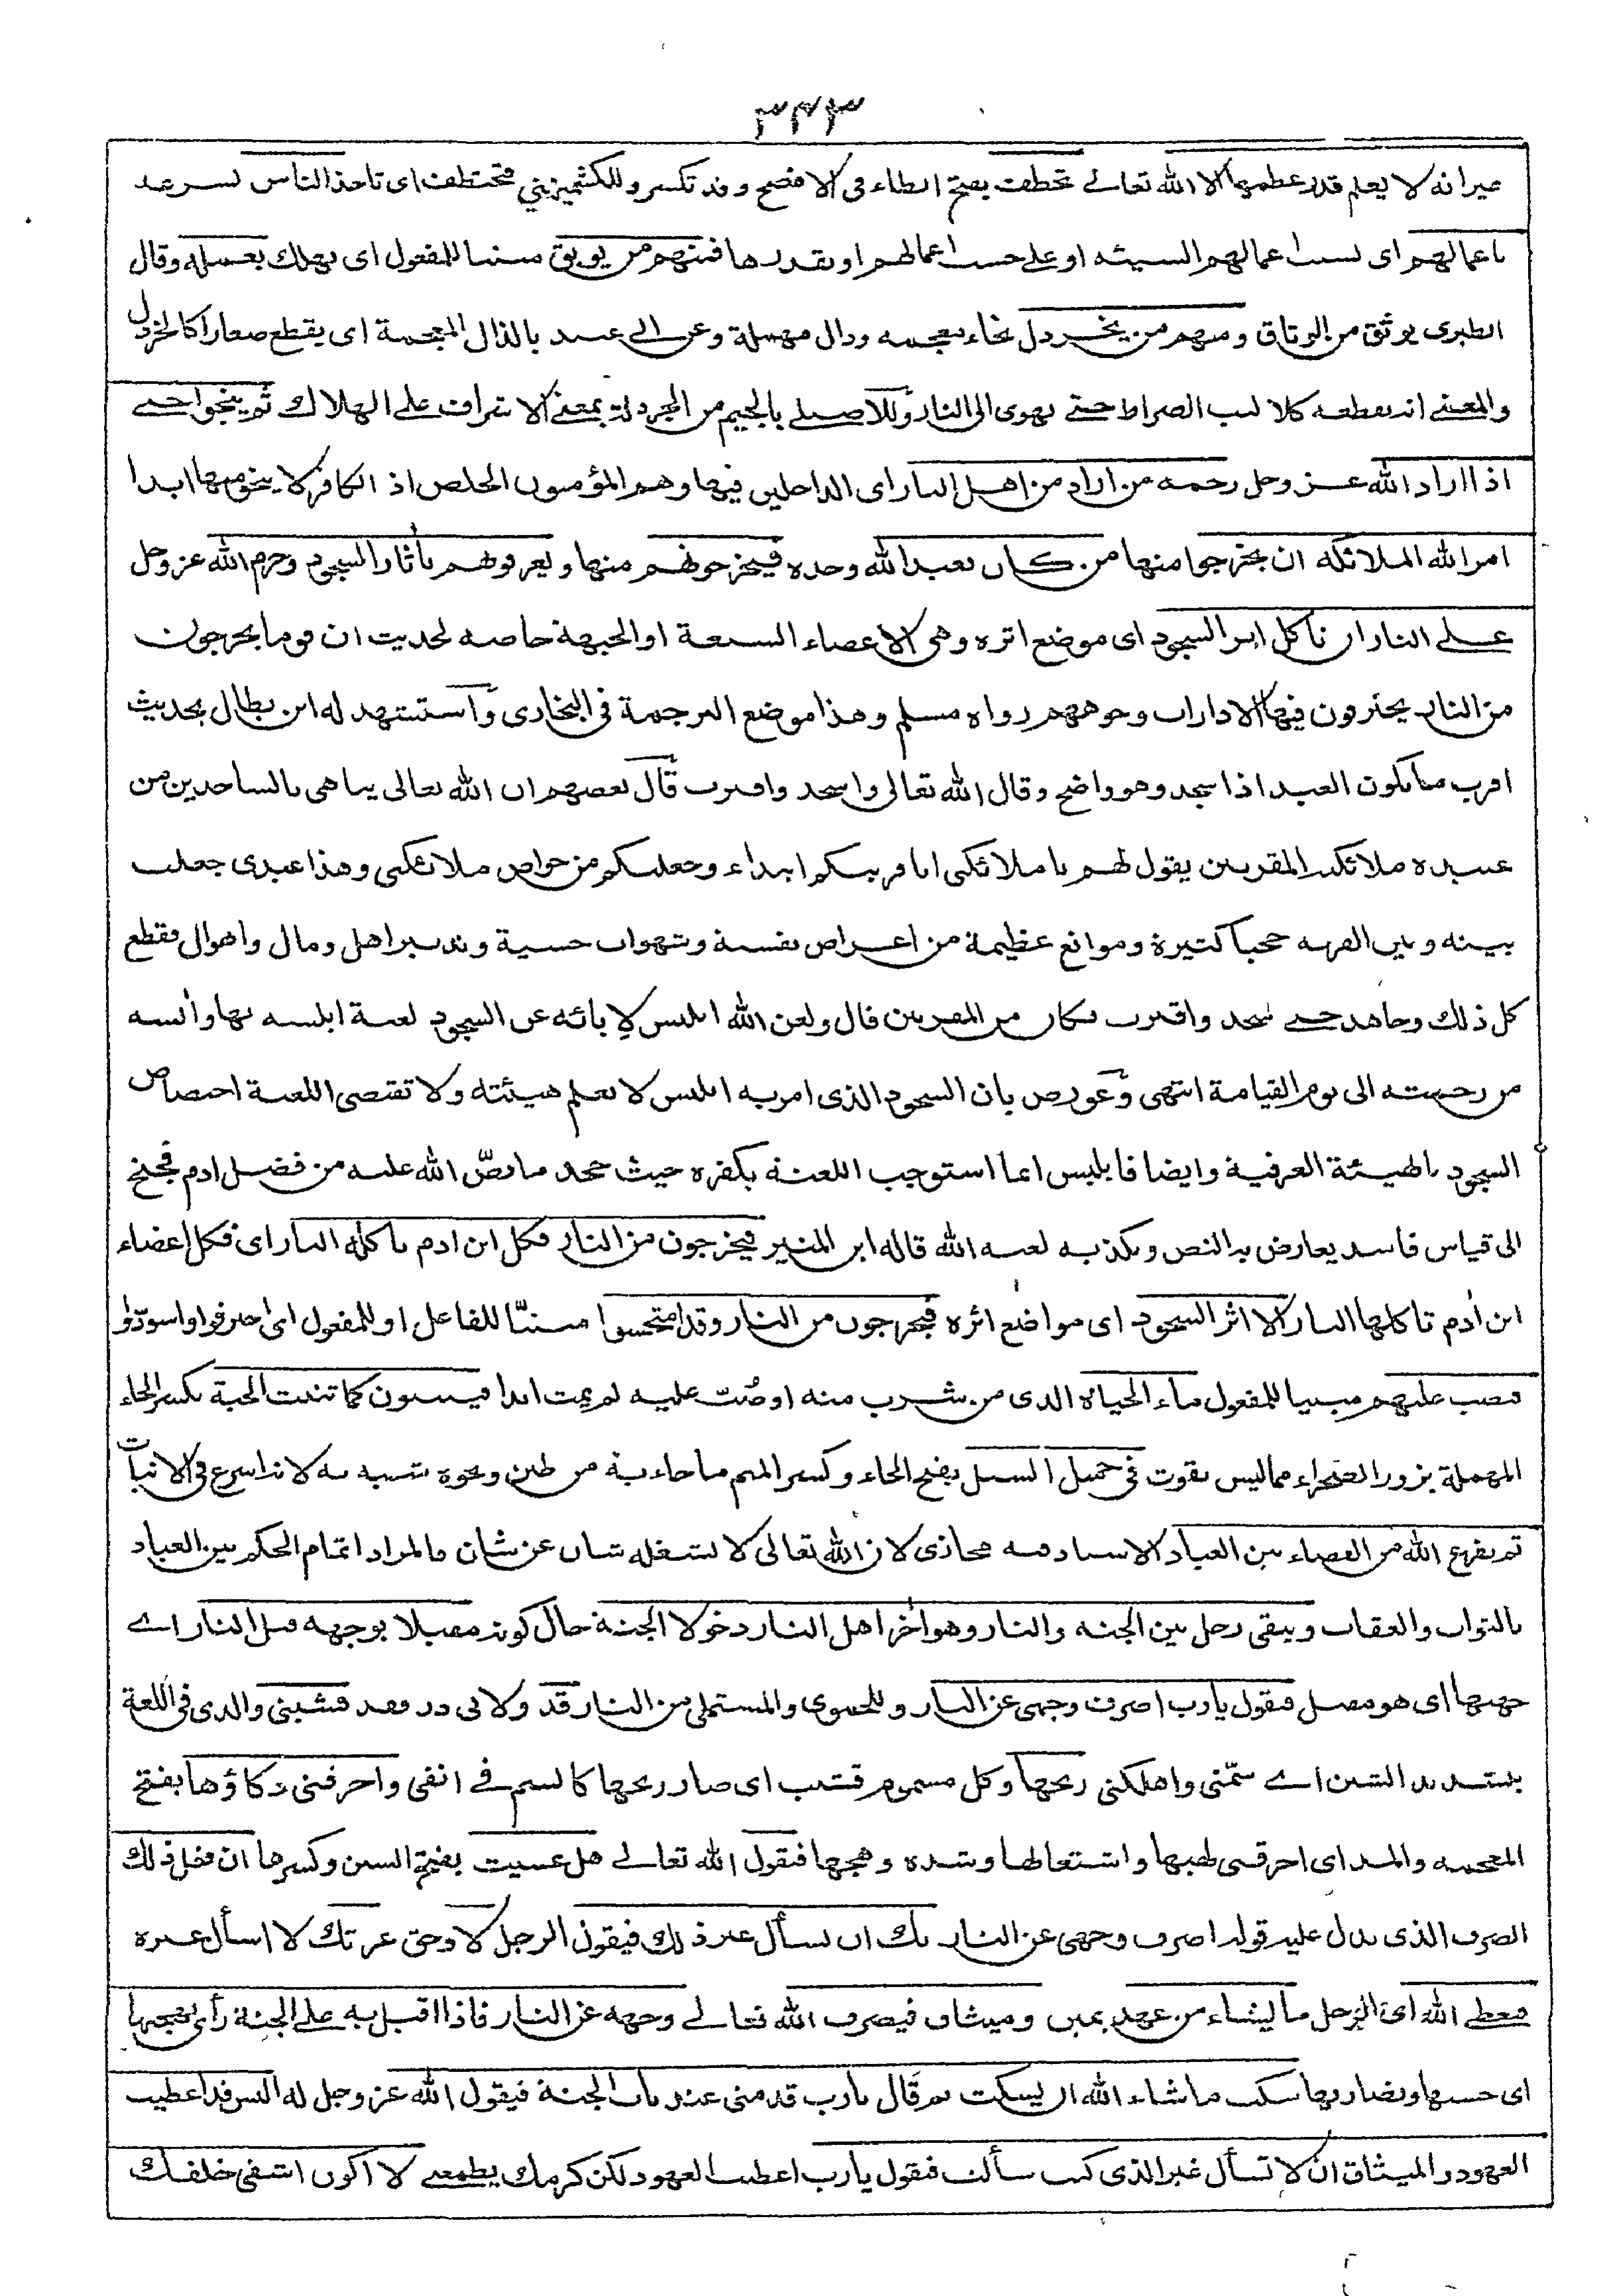 ٣٤٣
غير انه لا يعلم قدر عظمها الا الله تعالى تخطف بفتح الطاء فى الافصح وقد تكسر وللكشميهني فتختطف اى تاخذ الناس بسرعة
باعمالهم اى بسبب اعمالهم السيئة او على حسب اعمالهم او بقدرها فمنهم من يوبق مبنيا للمفعول اى يهلك بعمله وقال
الطبرى يوثق من الوثاق ومنهم من يخردل بخاء معجمة ودال مهملة وعن ابى عبيد بالذال المعجمة اى يقطع صغارا كالخردل
والمعنى انه تقطعه كلاليب الصراط حتى يهوى الى النار وللاصيلى بالجيم من الجردلة بمعنى الاشراف على الهلاك ثم ينجو حتى
اذا اراد الله عز وجل رحمة من اراد من اهل النار اى الداخلين فيها وهم المؤمنون الخلص اذ الكافر لا ينجو منها ابدا
امر الله الملائكة ان يخرجوا منها من كان يعبد الله وحده فيخرجونهم منها ويعرفونهم بأثار السجود وحرم الله عز وجل
على النار ان تأكل اثر السجود اى موضع اثره وهى الاعضاء السبعة او الجبهة خاصة لحديث ان قوما يخرجون
من النار يحترقون فيها الا دارات وجوههم رواه مسلم وهذا موضع الترجمة فى البخارى واستشهد له ابن بطال بحديث
اقرب ما يكون العبد اذا سجد وهو واضح وقال الله تعالى واسجد واقترب قال بعضهم ان الله تعالى يباهى بالساجدين من
عبيده ملائكته المقربين يقول لهم يا ملائكتى انا قربتكم ابتداء وجعلتكم من خواص ملائكتى وهذا عبدى جعلت
بينه وبين القربة حجبا كثيرة وموانع عظيمة من اعراض نفسية وشهوات حسية وتدبير اهل ومال واهوال فقطع
كل ذلك وجاهد حتى سجد واقترب فكان من المقربين قال ولعن الله ابليس لابائه عن السجود لعنة ابلسه بها وأيسه
من رحمته الى يوم القيامة انتهى وعورض بان السجود الذى امر به ابليس لا نعلم هيئته ولا تقتضى اللعنة اختصاص
السجود بالهيئة العرفية وايضا فابليس انما استوجب اللعنة بكفره حيث جحد ما نصّ الله عليه من فضل ادم فجنح
الى قياس فاسد يعارض به النص ويكذبه لعنه الله قاله ابن المنير فيخرجون من النار فكل ابن ادم تأكله النار اى فكل اعضاء
ابن أدم تاكلها النار الا اثر السجود اى مواضع اثره فيخرجون من النار وقد امتحشوا مبنيّا للفاعل او للمفعول اى احترقوا واسودّوا
فيصب عليهم مبنيا للمفعول ماء الحياة الذى من شرب منه او صُبّ عليه لم يمت ابدا فينبتون كما تنبت الحبة بكسر الحاء
المهملة بزور الصحراء مما ليس بقوت فى حميل السيل بفتح الحاء وكسر الميم ما جاء به من طين ونحوه شبه به لانه اسرع فى الانبات
ثم يفرغ الله من القضاء بين العباد الاسناد فيه مجازى لان الله تعالى لا يشغله شان عن شان فالمراد اتمام الحكم بين العباد
بالثواب والعقاب ويبقى رجل بين الجنة والنار وهو أخر اهل النار دخولا الجنة حال كونه مقبلا بوجهه قبل النار اى
جهتها اى هو مقبل فيقول يا رب اصرف وجهى عن النار وللحموى والمستملى من النار قد ولابى ذر فقد قشبنى والذى فى اللغة
بتشديد الشين اى سمّنى واهلكنى ريحها وكل مسموم قشيب اى صار ريحها كالسم فى انفى واحرقنى ذكاؤها بفتح
المعجمة والمد اى احرقنى لهبها واشتعالها وشدة وهجها فيقول الله تعالى هل عسيت بفتح السين وكسرها ان فعل ذلك
الصرف الذى يدل عليه قوله اصرف وجهى عن النار بك ان تسأل غير ذلك فيقول الرجل لا وحق عزتك لا اسأل غيره
فيعطى الله اى الرجل ما يشاء من عهد يمين وميثاق فيصرف الله تعالى وجهه عن النار فاذا اقبل به على الجنة رأى بهجتها
اى حسنها ونضارتها سكت ما شاء الله ان يسكت ثم قال يا رب قدمنى عند باب الجنة فيقول الله عز وجل له اليس قد اعطيت
العهود والميثاق ان لا تسأل غير الذى كنت سألت فيقول يا رب اعطيت العهود لكن كرمك يطمعنى لا اكون اشقى خلقك